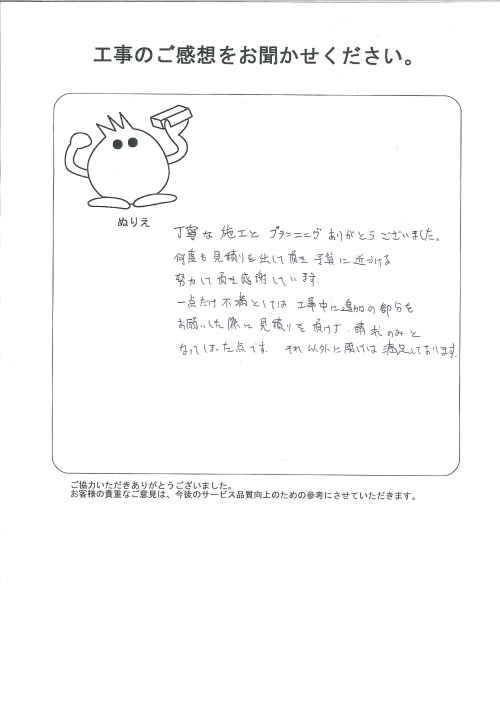 工事のご感想をお聞かせください。
ぬりえ
丁寧な施工とプランニニグありがとうございました。
何度も見積りを出して頂き予算に近づける
努力して頂き感謝しています。
一点だけ不満としては工事中に追加の部分を
お願いした際に見積りを頂けず、請求のみと
なってしまった点です。それ以外に関しては満足しております。
ご協力いただきありがとうございました。
お客様の貴重なご意見は、今後のサービス品質向上のための参考にさせていただきます。